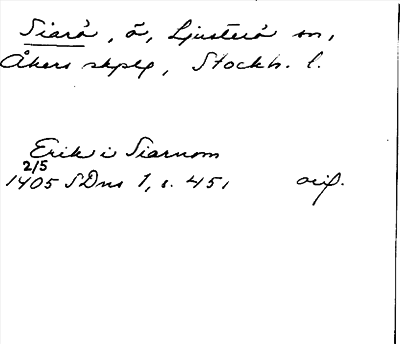 Siarö, ö, Ljusterö sn,
Åkers skplg, Stockh. l.
Erik i Siarnom
2/5
1405 SDns 1, s. 451